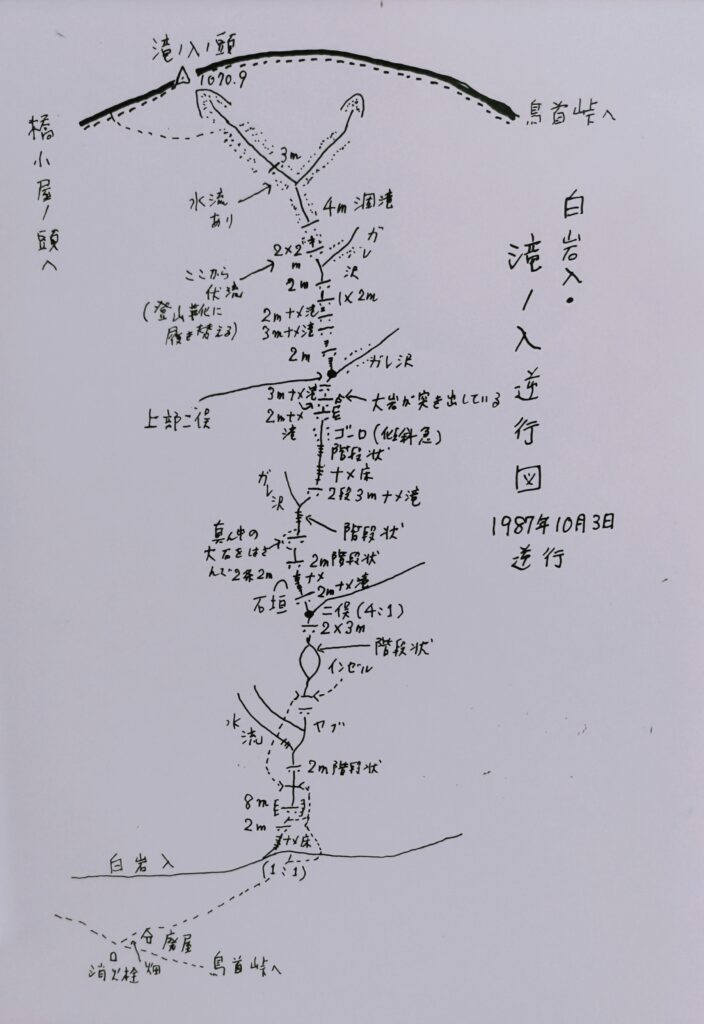 白岩入・
滝ノ入逆行図
1987年10月3日
逆行
滝ノ入ノ頭
1070.9
鳥首峠へ
橋小屋ノ頭へ
3m
水流
あり
4m涸滝
ガレ沢
2×2
m
ここから
伏流
(登山靴に
履き替える)
2m
1×2m
2mナメ滝
3mナメ滝
2m
ガレ沢
上部二俣
3mナメ滝
大岩が突き出している
2mナメ
滝
ゴーロ(傾斜急)
階段状
ナメ床
2段3mナメ滝
ガレ沢
階段状
真ん中の
大石をはさ
んで2条2m
2m階段状
ナメ
2mナメ滝
石垣
二俣(4:1)
2×3m
階段状
インゼル
水流
ヤブ
2m階段状
8m
2m
ナメ床
白岩入
(1:1)
廃屋
消火栓
畑
鳥首峠へ